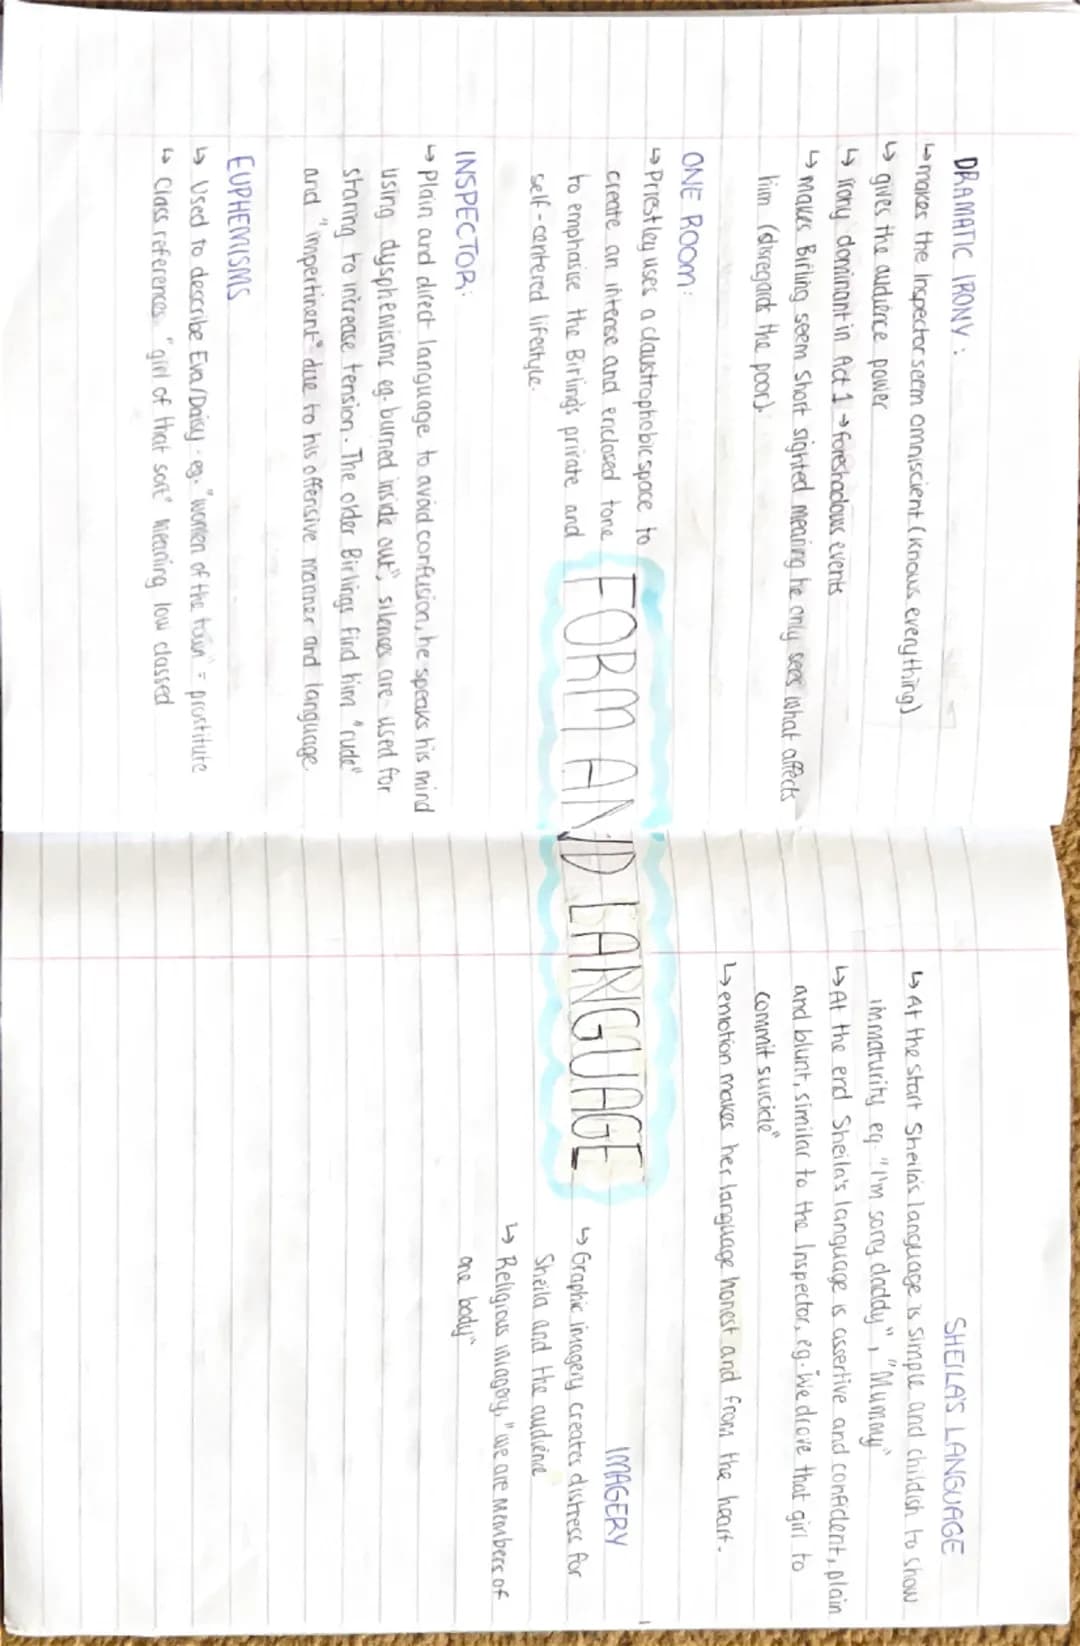 DRAMATIC IRONY:
↳ makes the Inspector seem omniscient (knows everything)
↳ gives the audience power
↳ irony dominant in Act 1 → foreshadows events
↳ makes Birling seem short sighted meaning he only sees what affects
him (disregards the poor).
ONE ROOM:
↳ Priestley uses a claustrophobic space to
create an intense and enclosed tone
to emphasise the Birling's private and
self-centered lifestyle.
INSPECTOR:
↳ Plain and direct language to avoid confusion, he speaks his mind
using dysphemisms eg. burned inside out", silences are used for
staring to increase tension. The older Birlings find him "rude"
and "impertinent" due to his offensive manner and language.
EUPHEMISMS
↳ Used to describe Eva/Daisy - eg. "women of the town" = prostitute
↳ Class references "girl of that sort" meaning low classed
FORM AND LANGUAGE
SHEILA'S LANGUAGE
↳ At the start Sheila's language is simple and childish to show
immaturity eg. "I'm sorry daddy", "Mummy"
↳ At the end Sheila's language is assertive and confident, plain
and blunt, similar to the Inspector, eg. "We drove that girl to
commit suicide"
↳ emotion makes her language honest and from the heart.
IMAGERY
↳ Graphic imagery creates distress for
Sheila and the audience
↳ Religious imagery, "we are members of
one body"